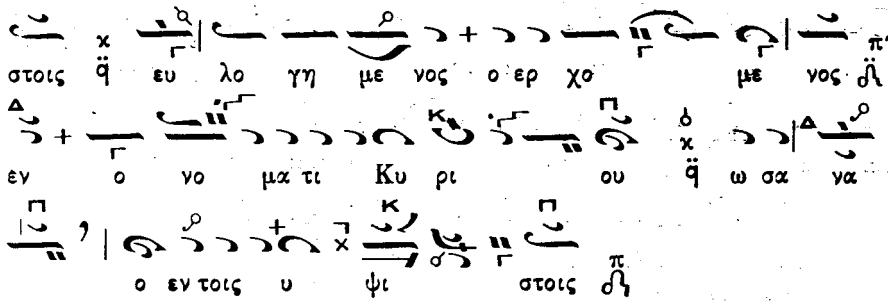 στοις ευ λο γη με νος ο ερ χο με νος
εν ο νο μα τι Κυ ρι ου ω σα να
ο εν τοις υ ψι στοις